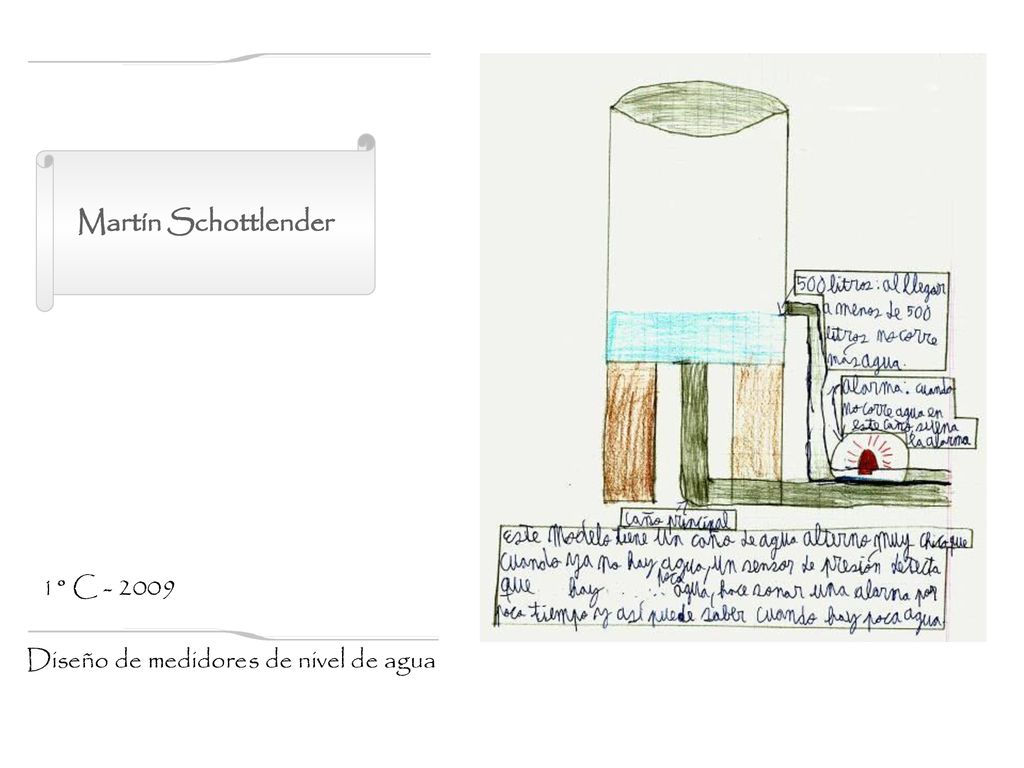 Martín Schottlender
1º C - 2009
Diseño de medidores de nivel de agua
500 litros: al llegar
a menos de 500
litros no corre
más agua.
alarma: cuando
no corre agua en
este caño, suena
la alarma
caño principal
este modelo tiene un caño de agua alterno muy chico que
cuando ya no hay agua, un sensor de presión detecta
que hay poca agua, hace sonar una alarma por
poco tiempo y así puede saber cuando hay poca agua